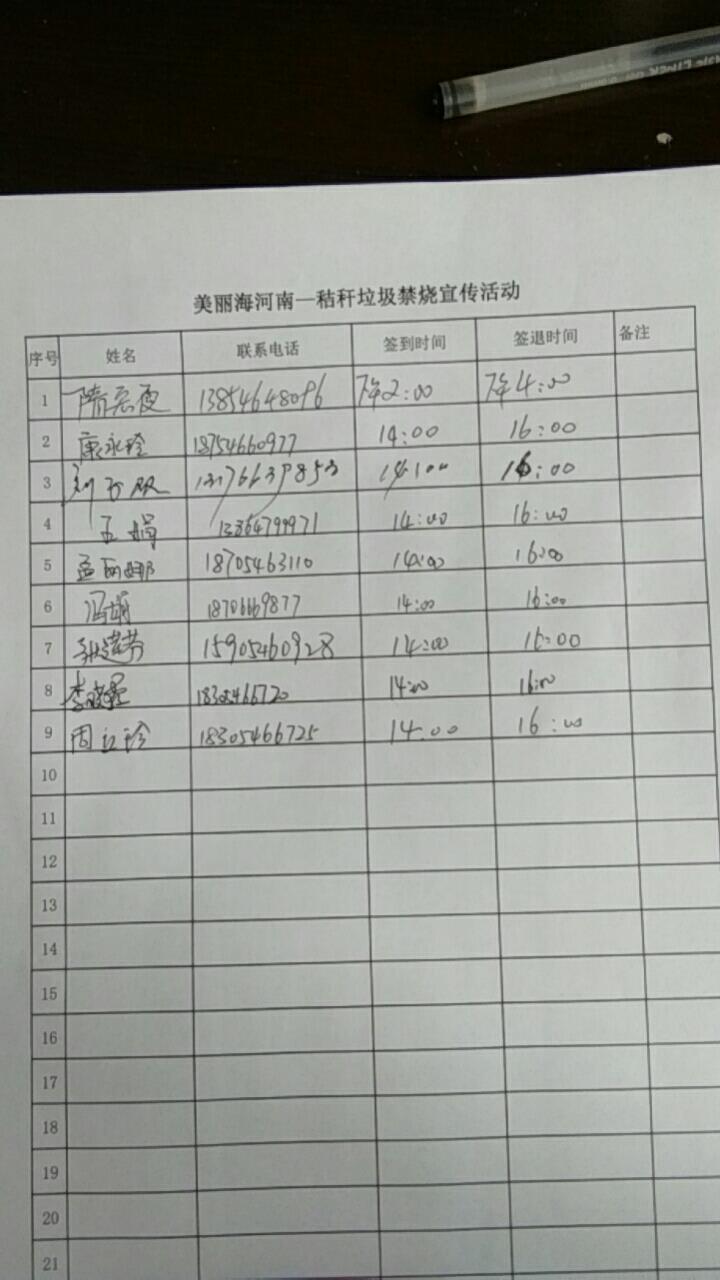 美丽海河南—秸秆垃圾禁烧宣传活动
序号 姓名 联系电话 签到时间 签退时间 备注
1 13854648096 下午2:00 下午4:00
2 康永玲 18754660977 14:00 16:00
3 刘 13176639853 14:00 16:00
4 孟娟 13864799971 14:00 16:00
5 孟丽娜 18705463110 14:00 16:00
6 冯娟 14:00 16:00
7 15905460928 14:00 16:00
8 李晓 14:00 16:00
9 周立珍 18305466725 14:00 16:00
10
11
12
13
14
15
16
17
18
19
20
21